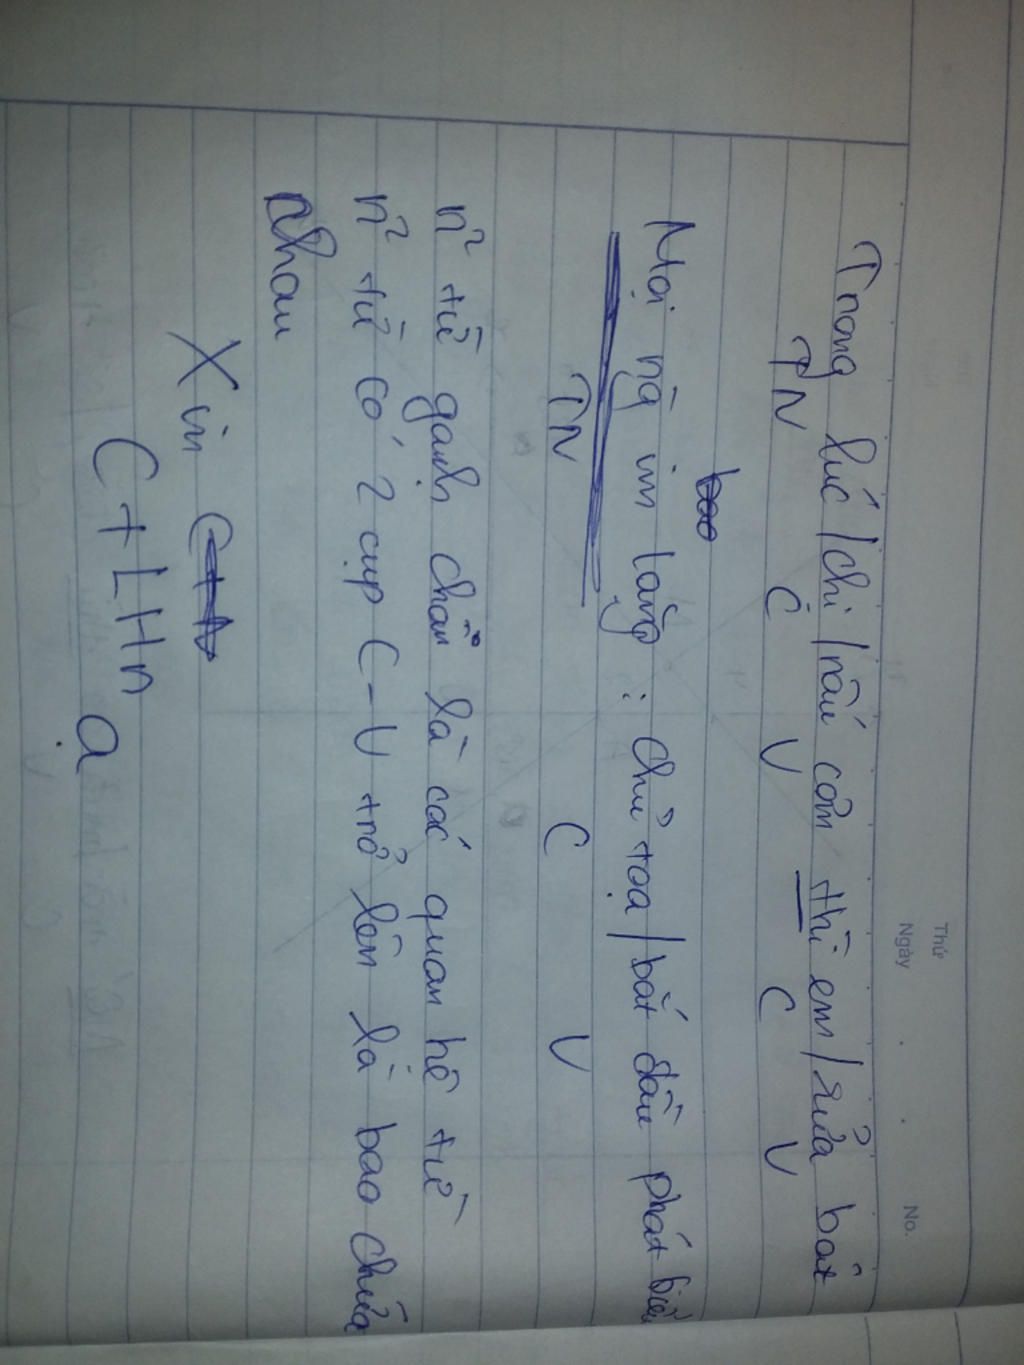 Thứ
Ngày . .
No.
Trong lúc / chị / nấu cơm thì em / rửa bát
TN C V C V
bao
Mọi ng im lặng : chủ tọa / bắt đầu phát biểu
TN C V
n² từ gạch chân là các quan hệ từ
n² từ có 2 cụp C - V trở lên là bao chứa
nhau
Xin
C+LHn ạ